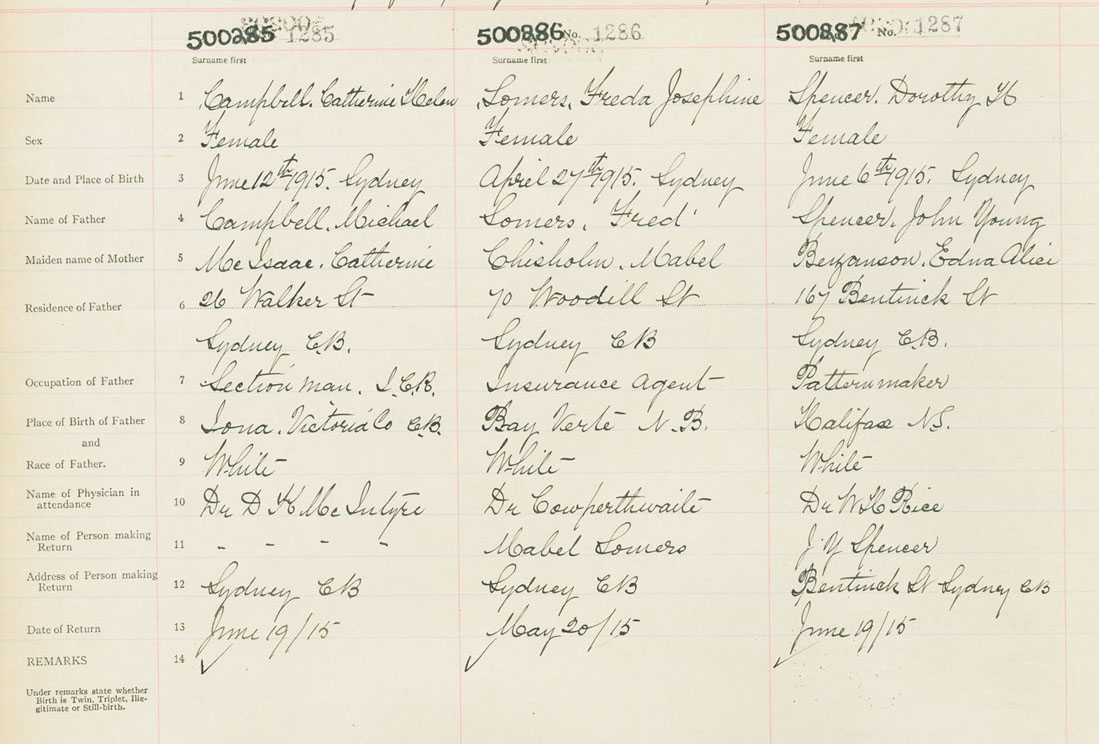 500285 1285 500886 No. 1286 500887 No. 1287
Surname first Surname first Surname first
Name 1 Campbell. Catherine Helen Somers, Freda Josephine Spencer. Dorothy H
Sex 2 Female Female Female
Date and Place of Birth 3 June 12th 1915. Sydney April 27th 1915. Sydney June 6th 1915. Sydney
Name of Father 4 Campbell. Michael Somers, Fred Spencer, John Young
Maiden name of Mother 5 McIsaac. Catherine Chisholm. Mabel Bezanson. Edna Alice
Residence of Father 6 26 Walker St 70 Woodill St 167 Bentinck St
Sydney C.B. Sydney CB Sydney C.B.
Occupation of Father 7 Section man. I.C.R. Insurance Agent Patternmaker
Place of Birth of Father 8 Iona. Victoria Co C.B. Bay Verte N.B. Halifax NS.
and
Race of Father. 9 White White White
Name of Physician in attendance 10 Dr D K McIntyre Dr Cowperthwaite Dr W H Rice
Name of Person making Return 11 - - - - Mabel Somers J. Y Spencer
Address of Person making Return 12 Sydney CB Sydney CB Bentinck St Sydney CB
Date of Return 13 June 19/15 May 20/15 June 19/15
REMARKS 14
Under remarks state whether
Birth is Twin, Triplet, Ille-
gitimate or Still-birth.